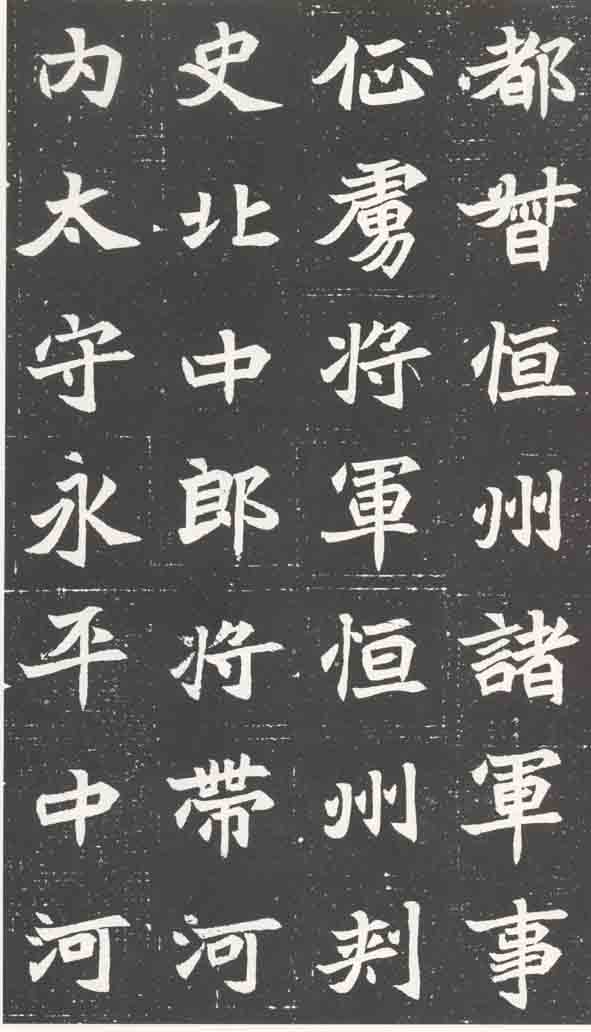 都督恒州諸軍事
征虜將軍恒州刾
史北中郎將帶河
内太守永平中河